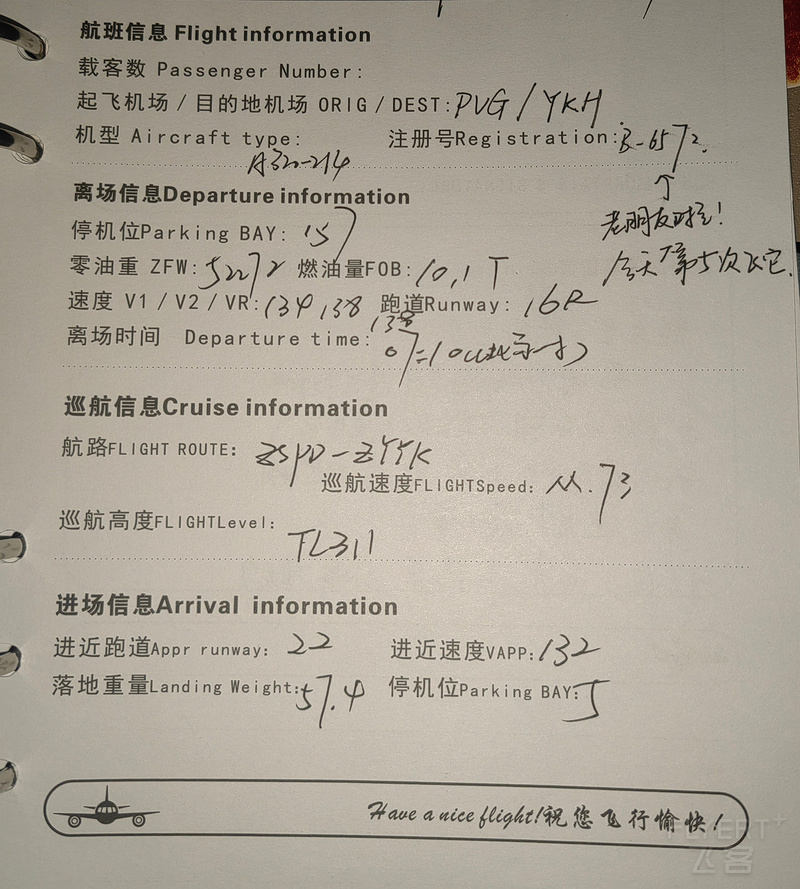 航班信息 Flight information
载客数 Passenger Number:
起飞机场 / 目的地机场 ORIG / DEST: PVG / YKH
机型 Aircraft type: A320-214 注册号Registration: B-6572.
离场信息Departure information
停机位Parking BAY: 157
老朋友对吧!
零油重 ZFW: 52272 燃油量FOB: 10.1 T
今天第5次飞它.
速度 V1 / V2 / VR: 134 138 138 跑道Runway: 16R
离场时间 Departure time: 07:10
巡航信息Cruise information
航路FLIGHT ROUTE: ZSPD-ZYYK
巡航速度FLIGHTSpeed: M.73
巡航高度FLIGHTLevel: FL311
进场信息Arrival information
进近跑道Appr runway: 22 进近速度VAPP: 132
落地重量Landing Weight: 57.4 停机位Parking BAY: 5
Have a nice flight!祝您飞行愉快!
FLYERT+
飞客